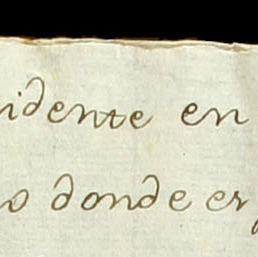 idente en
o donde er